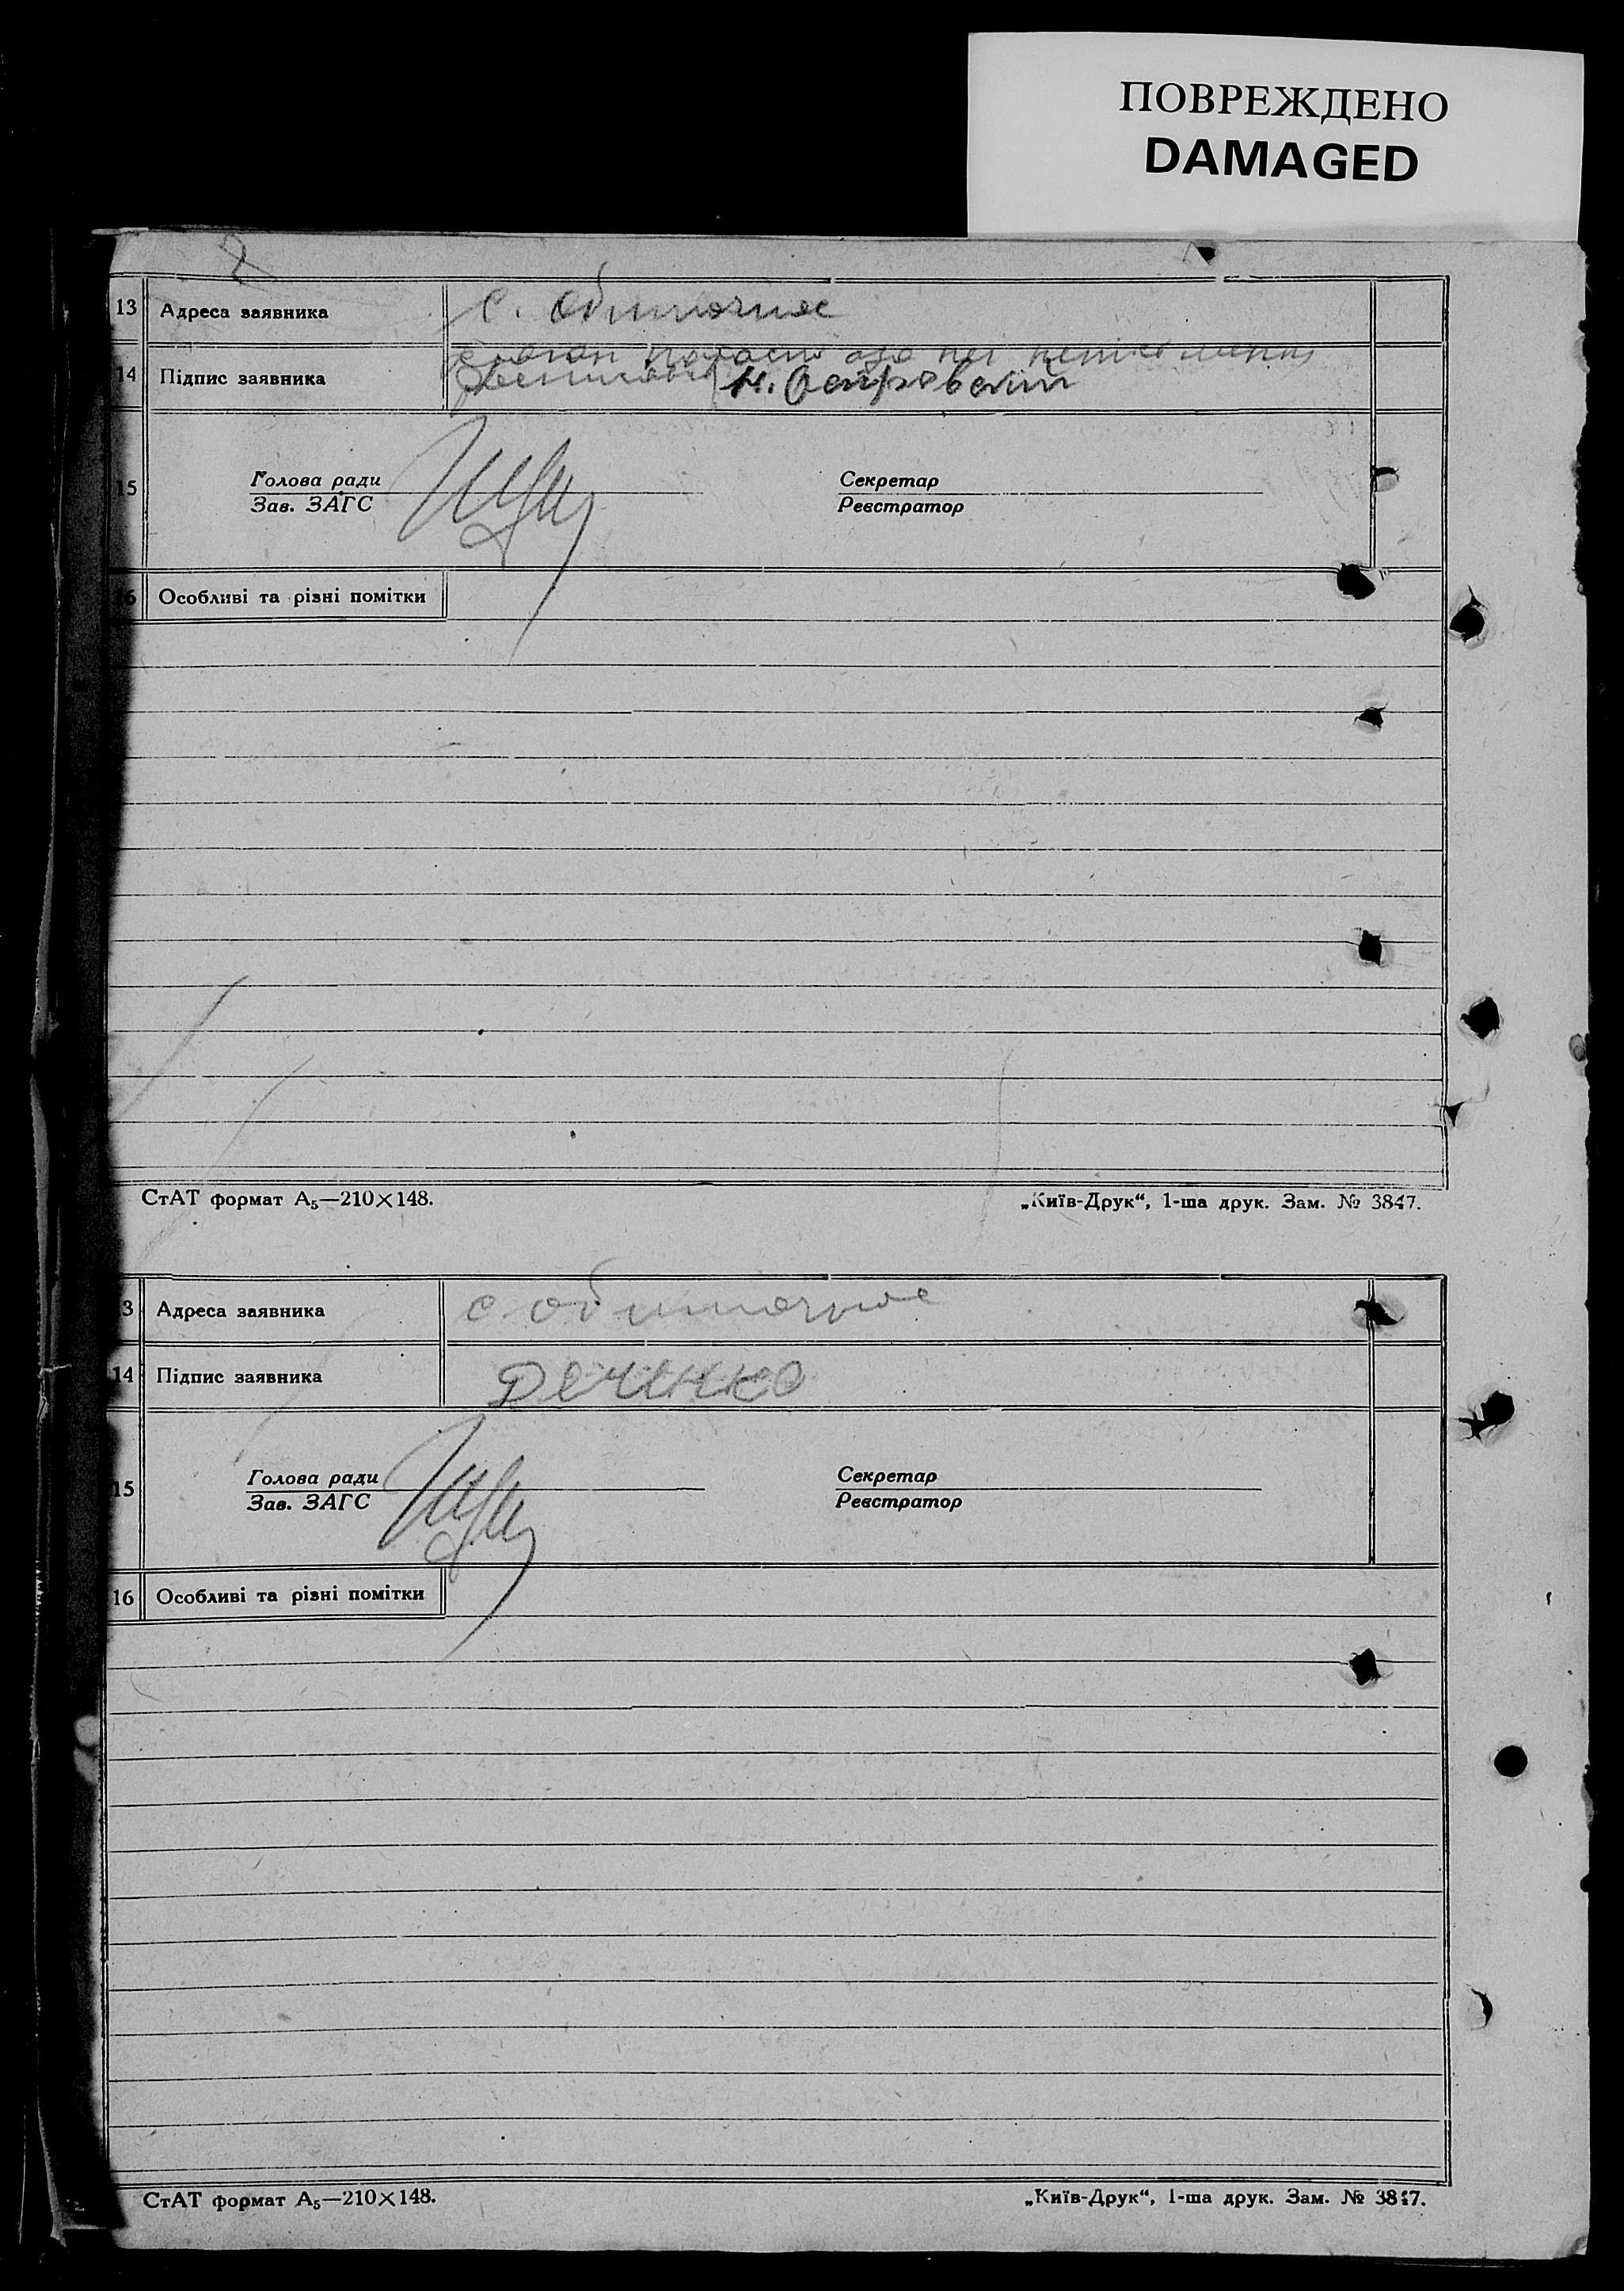 ПОВРЕЖДЕНО
DAMAGED
13 Адреса заявника с.
14 Підпис заявника Н. Островський
15 Голова ради Секретар
Зав. ЗАГС Реєстратор
16 Особливі та різні помітки
СтАТ формат А₅—210×148. „Київ-Друк“, 1-ша друк. Зам. № 3847.
3 Адреса заявника с
14 Підпис заявника
15 Голова ради Секретар
Зав. ЗАГС Реєстратор
16 Особливі та різні помітки
СтАТ формат А₅—210×148. „Київ-Друк“, 1-ша друк. Зам. № 3847.